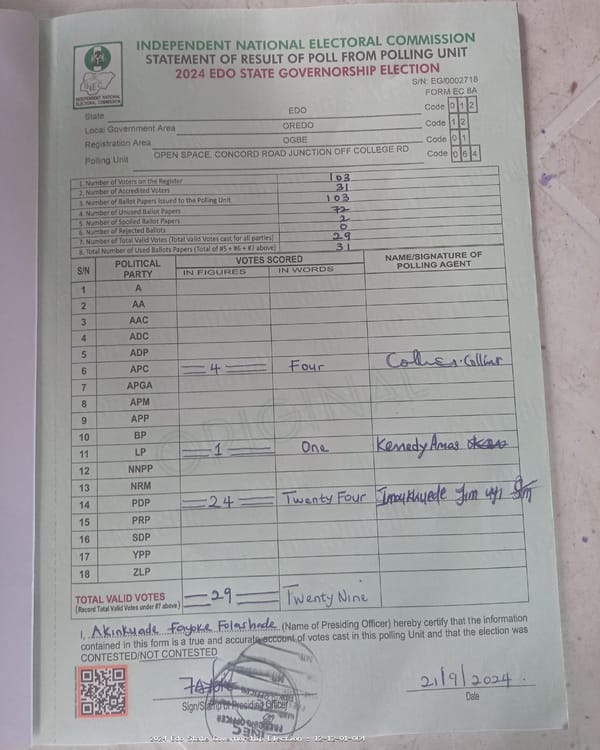 INDEPENDENT NATIONAL ELECTORAL COMMISSION
STATEMENT OF RESULT OF POLL FROM POLLING UNIT
2024 EDO STATE GOVERNORSHIP ELECTION
INEC
INDEPENDENT NATIONAL
ELECTORAL COMMISSION
S/N: EG/0002718
FORM EC 8A
State EDO Code 0 1 2
Local Government Area OREDO Code 1 2
Registration Area OGBE Code 0 1
Polling Unit OPEN SPACE, CONCORD ROAD JUNCTION OFF COLLEGE RD Code 0 6 4
1. Number of Voters on the Register 103
2. Number of Accredited Voters 31
3. Number of Ballot Papers Issued to the Polling Unit 103
4. Number of Unused Ballot Papers 72
5. Number of Spoiled Ballot Papers 2
6. Number of Rejected Ballots 0
7. Number of Total Valid Votes (Total Valid Votes cast for all parties) 29
8. Total Number of Used Ballot Papers (Total of #5 + #6 + #7 above) 31
S/N POLITICAL PARTY VOTES SCORED NAME/SIGNATURE OF POLLING AGENT
IN FIGURES IN WORDS
1 A
2 AA
3 AAC
4 ADC
5 ADP
6 APC 4 Four
7 APGA
8 APM
9 APP
10 BP
11 LP 1 One Kennedy Amas
12 NNPP
13 NRM
14 PDP 24 Twenty Four
15 PRP
16 SDP
17 YPP
18 ZLP
ORIGINAL
TOTAL VALID VOTES 29 Twenty Nine
(Record Total Valid Votes under #7 above)
I, Akinkuade Fayoke Folashade (Name of Presiding Officer) hereby certify that the information
contained in this form is a true and accurate account of votes cast in this polling Unit and that the election was
CONTESTED/NOT CONTESTED
21/9/2024
Sign/Stamp of Presiding Officer
Date
2024 Edo State Governorship Election - 12-12-01-064